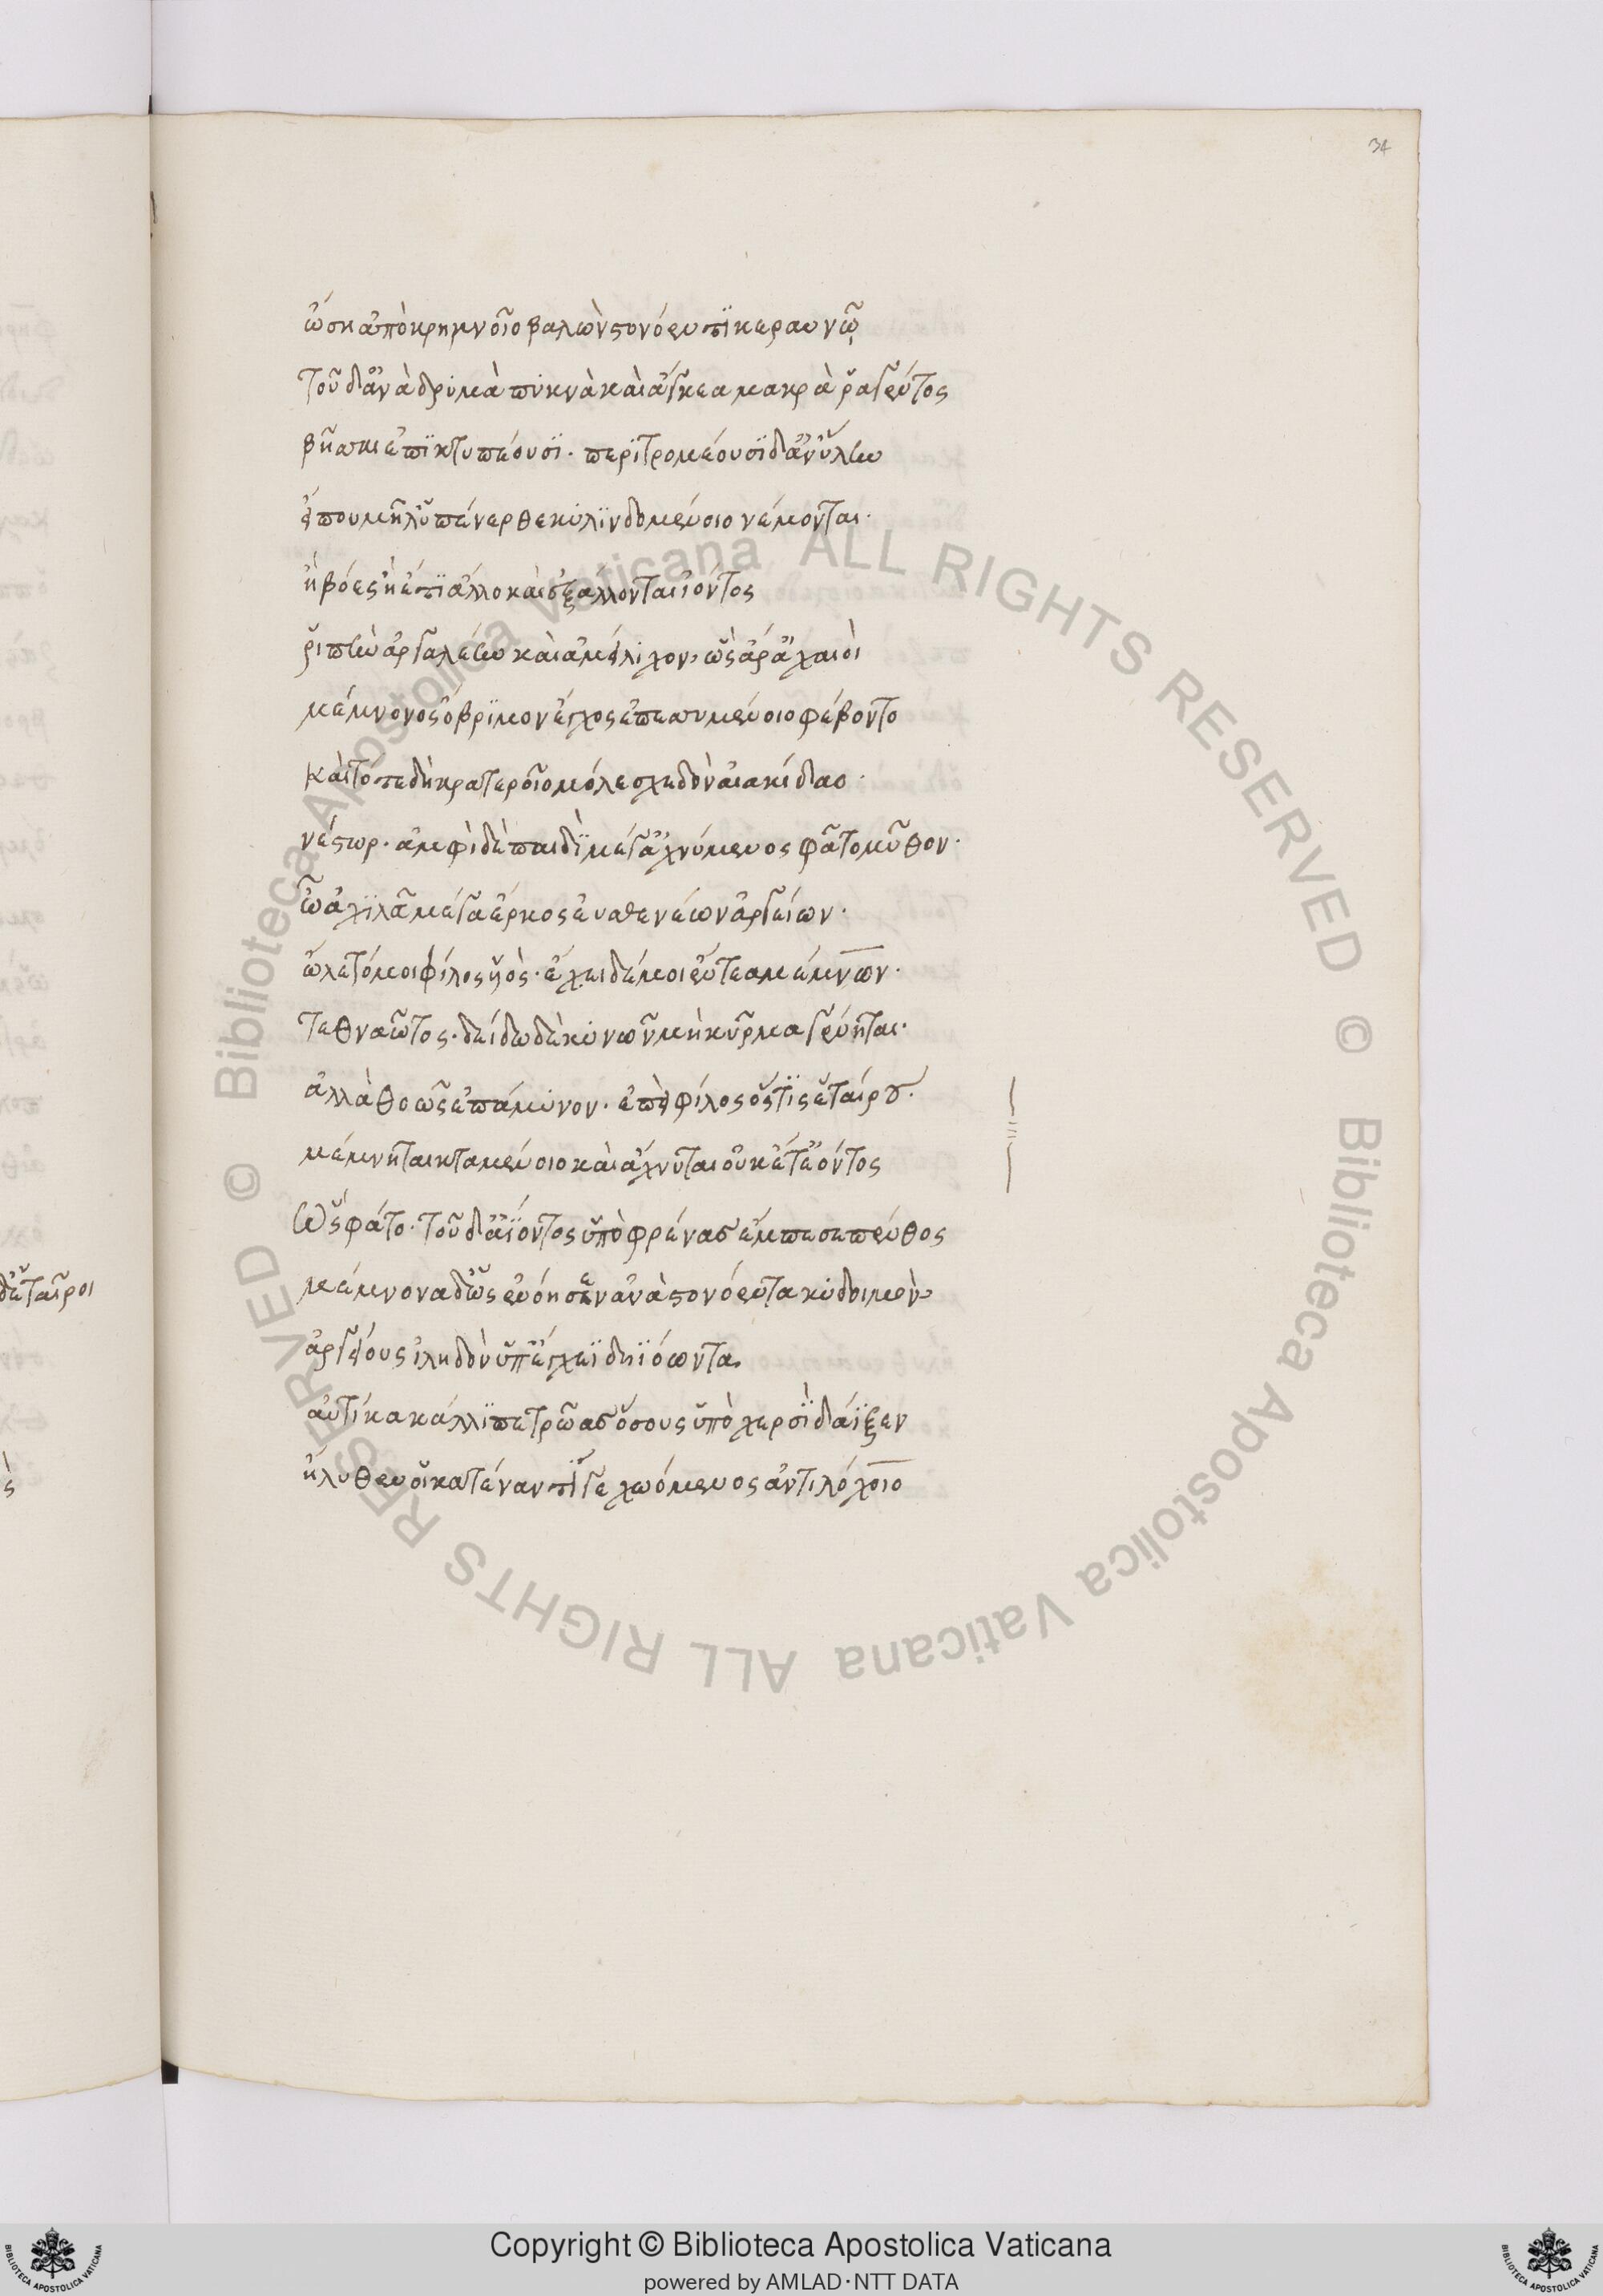 34
ὥση ἀπὸ κρημνοῖο βαλὼν στονόεντι κεραυνῷ
τοῦ δ' ἀνὰ δρυμὰ πυκνὰ καὶ ἄγκεα μακρὰ ῥαγέντος
βῆσσαι ἐπικτυπέουσι· περιτρομέουσι δ' ἀν' ὕλην
εἴ που μῆλ' ὑπένερθε κυλινδομένοιο νέμονται·
ἢ βόες ἠέ τι ἄλλο καὶ ἐξαλέονται ἰόντος
ῥιπὴν ἀργαλέην καὶ ἀμείλιχον· ὣς ἄρ' ἀχαιοὶ
μέμνονος ὄβριμον ἔγχος ἐπεσσυμένοιο φέβοντο
καὶ τότε δὴ κρατεροῖο μόλε σχεδὸν αἰακίδαο·
νέστωρ· ἀμφὶ δὲ παιδὶ μέγ' ἀχνύμενος φάτο μῦθον·
ὦ ἀχιλεῦ μέγα ἕρκος ἐυσθενέων ἀργείων·
ὤλετό μοι φίλος υἱός· ἔχει δέ μοι ἔντεα μέμνων·
τεθναῶτος· δείδω δὲ κυνῶν μὴ κύρμα γένηται·
ἀλλὰ θοῶς ἐπάμυνον· ἐπεὶ φίλος ὅς τις ἑταίρου·
μέμνηται κταμένοιο καὶ ἄχνυται οὐκέτ' ἐόντος
Ὣς φάτο· τοῦ δ' ἀίοντος ὑπὸ φρένας ἔμπεσε πένθος
μέμνονα δ' ὡς ἐνόησεν ἀνὰ στονόεντα κυδοιμὸν
ἀργείους ἰληδὸν ὑπ' ἔγχεϊ δηιόωντα
αὐτίκα κάλλιπε τρῶας ὅσους ὑπὸ χερσὶ δάϊξεν
ἤλυθεν οἱ κατέναντί γε χωόμενος ἀντιλόχοιο
δ' ἑταῖροι
Copyright © Biblioteca Apostolica Vaticana
powered by AMLAD·NTT DATA
© Biblioteca Apostolica Vaticana ALL RIGHTS RESERVED © Biblioteca Apostolica Vaticana ALL RIGHTS RESERVED
BIBLIOTECA APOSTOLICA VATICANA
BIBLIOTECA APOSTOLICA VATICANA